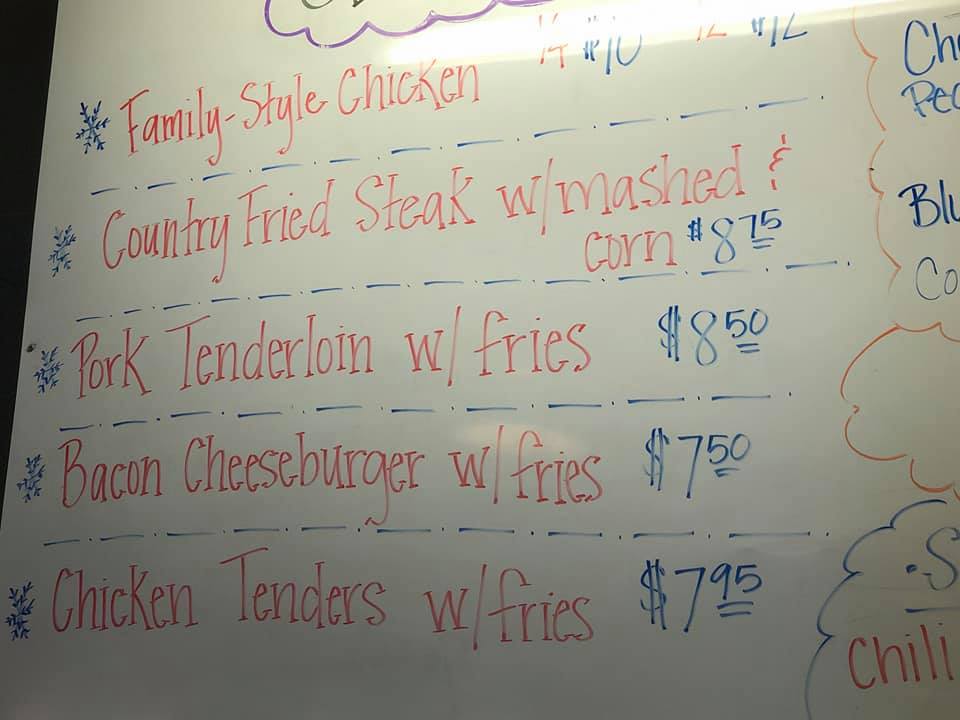 Family-Style Chicken 1/4 $10 1/2 $12
Country Fried Steak w/mashed &
corn $8 75
Pork Tenderloin w/ fries $8 50
Bacon Cheeseburger w/fries $7 50
Chicken Tenders w/fries $7 95
Chili